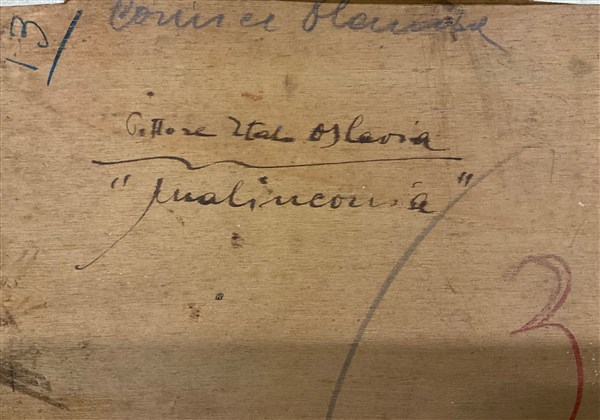 13/
Cornice Olandese
Pittore Italo Oslavia
"Malinconia"
3